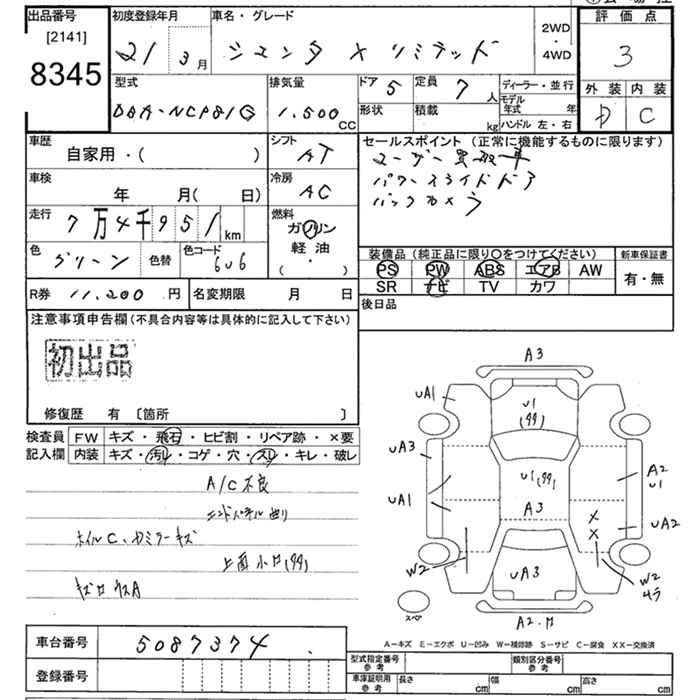 出品番号
[2141]
8345
初度登録年月
21 3月
車名・グレード
シエンタ X リミテッド
2WD
・
4WD
評価点
3
外装 内装
D C
型式
DBA-NCP81G
排気量
1.500 CC
ドア 5
定員 7 人
形状
積載 kg
ディーラー・並行
モデル年式 年
ハンドル 左・右
車歴
自家用・( )
シフト
AT
車検
年 月( 日)
冷房
AC
走行
7万4千951 km
燃料
ガソリン
軽油
( ・ )
色
グリーン
色替
色コード
6U6
R券 11.200 円
名変期限 月 日
セールスポイント (正常に機能するものに限ります)
ユーザー買取車
パワースライドドア
バックカメラ
装備品 (純正品に限り○をつけてください)
PS PW ABS エアB AW
SR ナビ TV カワ
新車保証書
有・無
後日品
注意事項申告欄 (不具合内容等は具体的に記入して下さい)
初出品
修復歴 有 〔箇所 〕
検査員
記入欄
FW キズ・飛石・ヒビ割・リペア跡・×要
内装 キズ・汚レ・コゲ・穴・スレ・キレ・破レ
A/C不良
エンドパネル曲り
ホイルC、カミラーキズ
上面小凹(99)
A3
UA1
U1
(99)
UA3
A2
U1
U1(99)
UA1
A3
UA2
×
×
W2
UA3
W2
スペア
A2.凹
A-キズ E-エクボ U-凹み W-補修跡 S-サビ C-腐食 XX-交換済
車台番号 5087374
登録番号
型式指定番号
参考
類別区分番号
参考
車庫証明用
参考
長さ cm
幅 cm
高さ cm